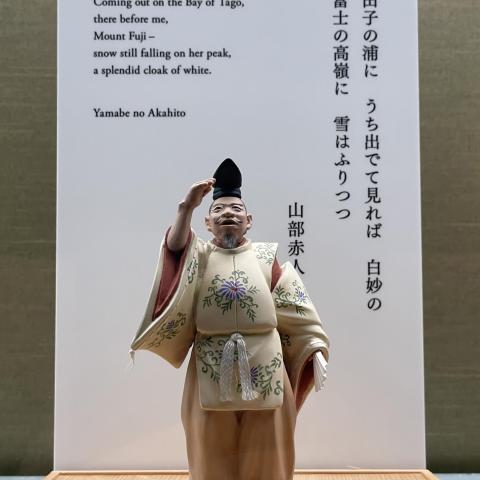 Coming out on the Bay of Tago,
there before me,
Mount Fuji –
snow still falling on her peak,
a splendid cloak of white.
Yamabe no Akahito
田子の浦に　うち出でて見れば　白妙の
富士の高嶺に　雪はふりつつ
山部赤人